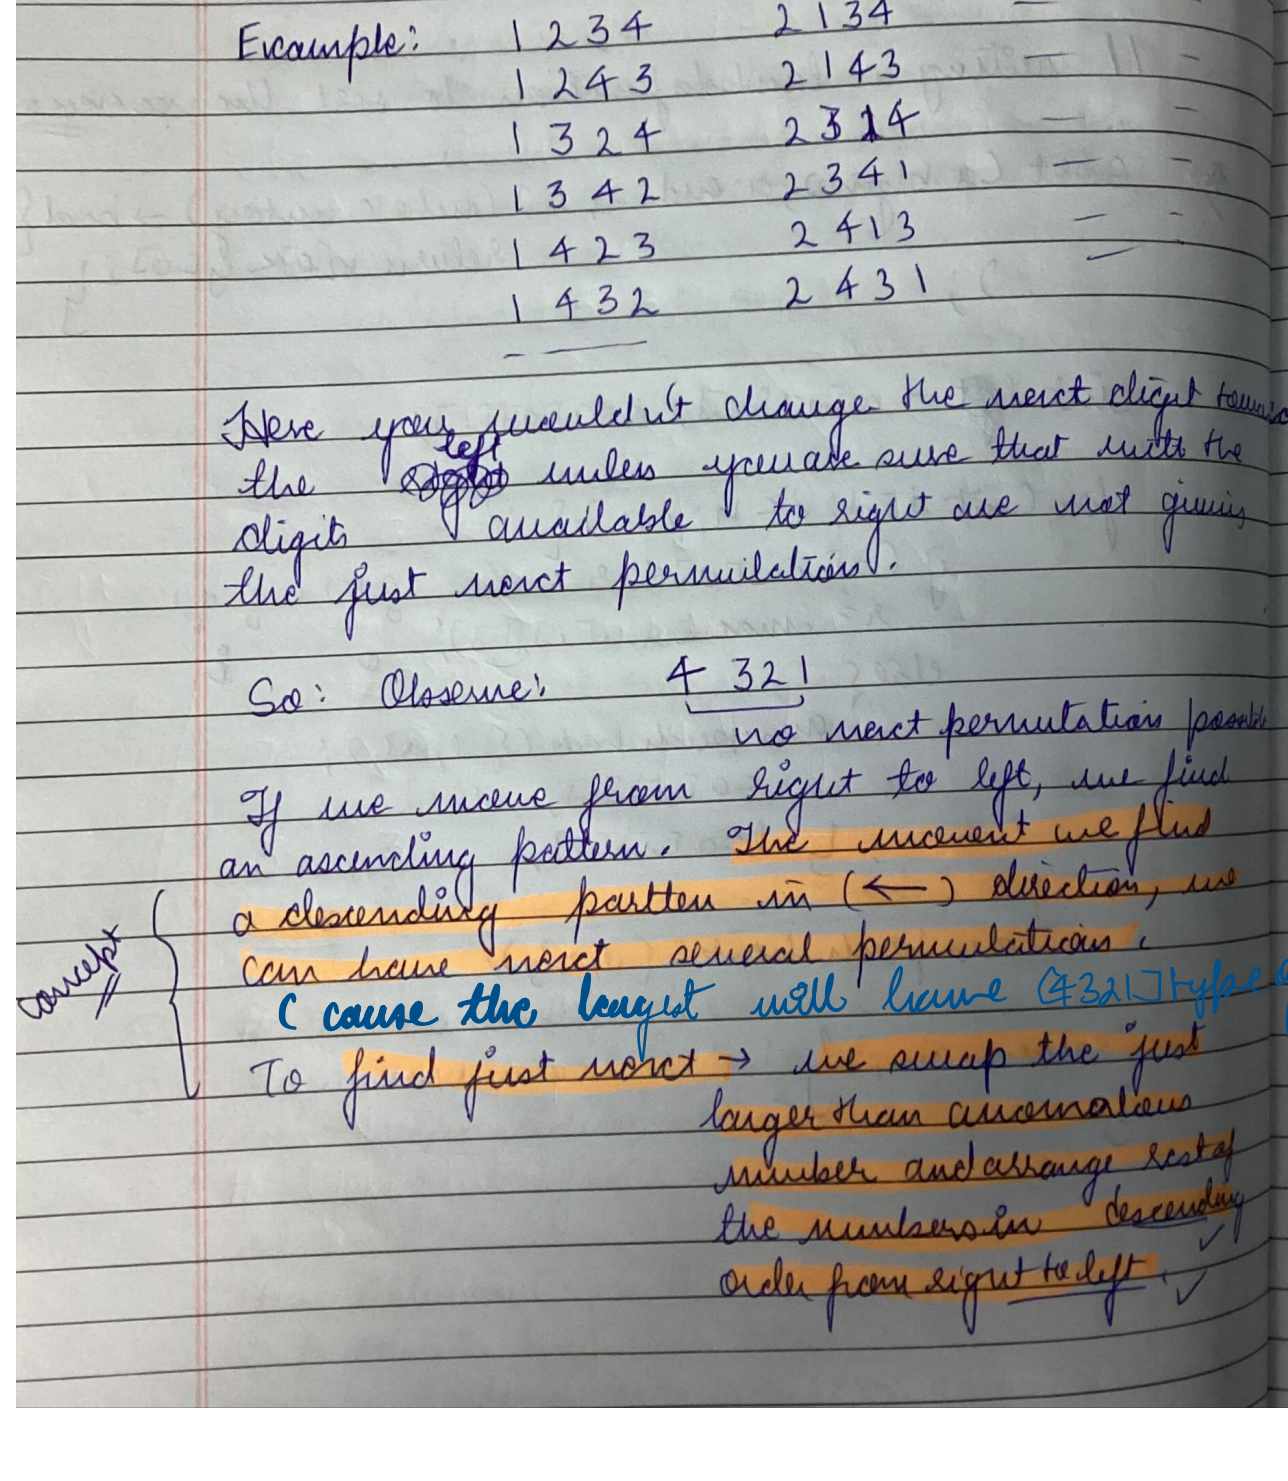 Example: 1 2 3 4 2 1 3 4
1 2 4 3 2 1 4 3
1 3 2 4 2 3 1 4
1 3 4 2 2 3 4 1
1 4 2 3 2 4 1 3
1 4 3 2 2 4 3 1
Here you wouldn't change the next digit towards
the left unless you are sure that with the
digits available to right are not giving
the just next permutation.
So: Observe: 4 3 2 1
no next permutation possible
If we move from right to left, we find
an ascending pattern. The moment we find
a descending partten in (←) direction, we
can have next several permutations.
( cause the largest will have [4321] type
concept
To find just next → we swap the just
larger than anomalous
number and arrange rest of
the numbers in descending
order from right to left.